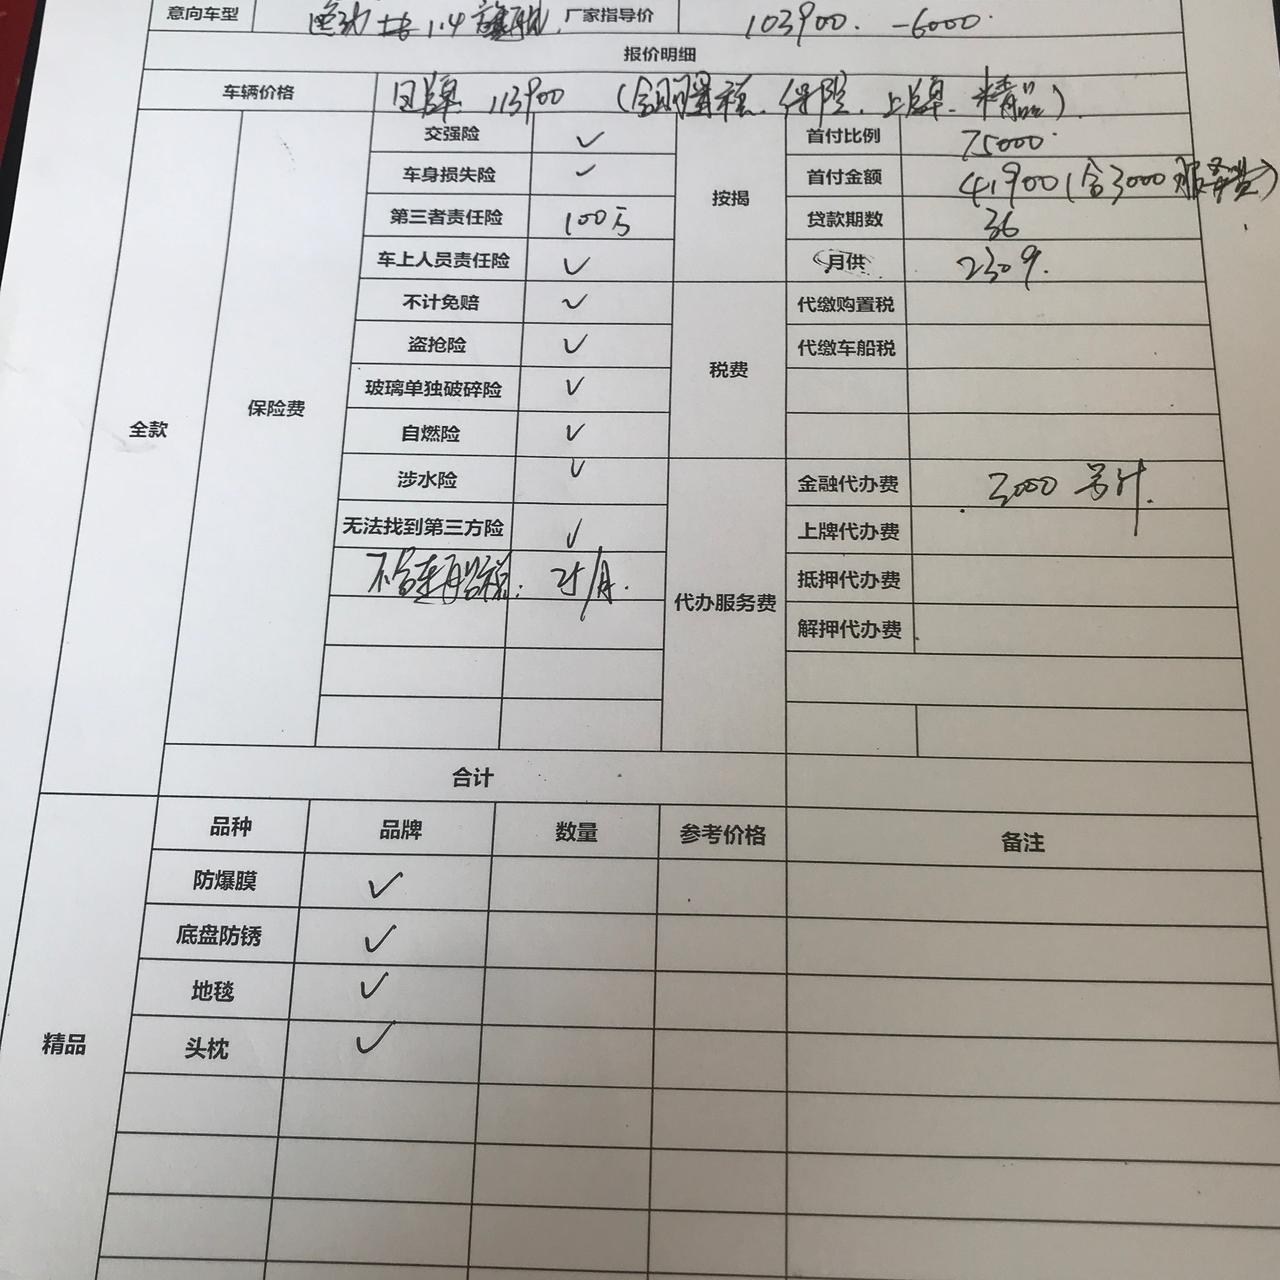 意向车型 运动 1.4 旗舰 厂家指导价 103900. -6000.
报价明细
车辆价格 回牌 113900 (含购置税、保险、上牌、精品)
全款
保险费
交强险 ✓
车身损失险 ✓
第三者责任险 100万
车上人员责任险 ✓
不计免赔 ✓
盗抢险 ✓
玻璃单独破碎险 ✓
自燃险 ✓
涉水险 ✓
无法找到第三方险 ✓
不含车船税: 25/月.
按揭
首付比例 75000
首付金额 41900 (含3000服务费)
贷款期数 36
月供 2309.
税费
代缴购置税
代缴车船税
代办服务费
金融代办费 3000
上牌代办费
抵押代办费
解押代办费
合计
精品
品种 品牌 数量 参考价格 备注
防爆膜 ✓
底盘防锈 ✓
地毯 ✓
头枕 ✓